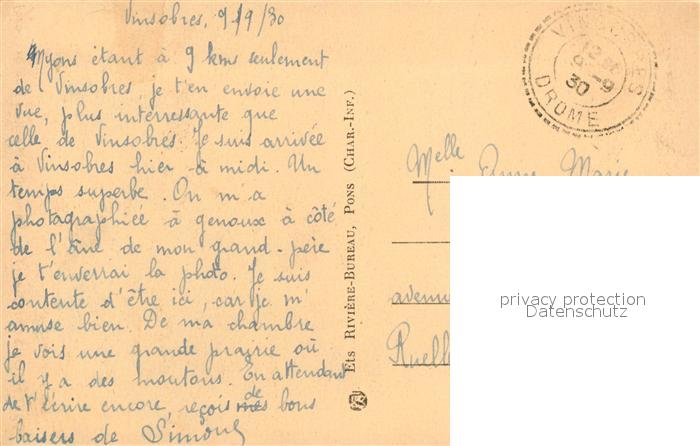 Vinsobres, 9/9/30
Nyons étant à 9 kms seulement
de Vinsobres je t'en envoie une
vue, plus interressante que
celle de Vinsobres. Je suis arrivée
à Vinsobres hier à midi. Un
temps superbe. On m'a
photographiée à genoux à côté
de l'âne de mon grand-père
je t'enverrai la photo. Je suis
contente d'être ici, car je m'
amuse bien. De ma chambre
je vois une grande prairie où
il y a des moutons. En attendant
de t'écrire encore, reçois de bons
baisers de Simone
Ets RIVIÈRE-BUREAU, PONS (CHAR.-INF.)
VINSOBRES
9-9
30
DROME
Melle Anne Marie
avenue
Ruelle
privacy protection
Datenschutz